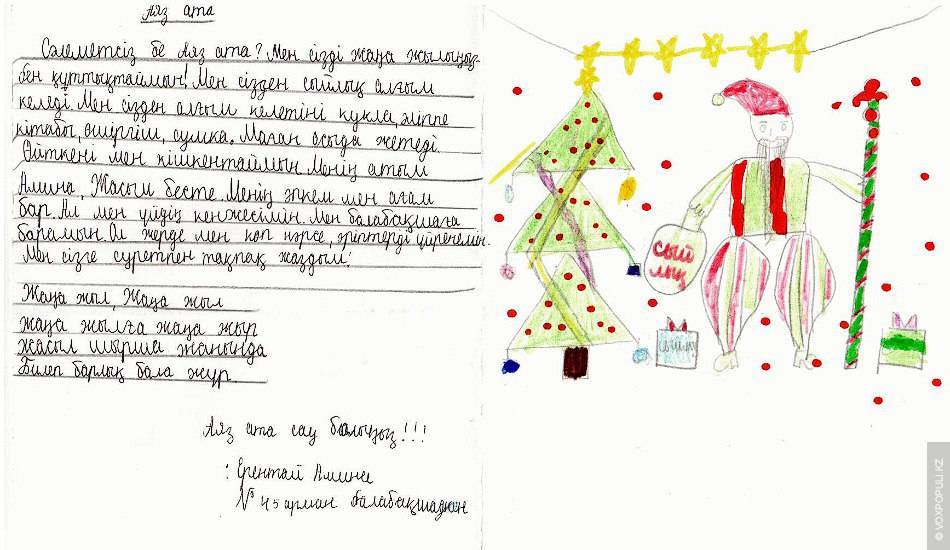 Аяз ата
Сәлеметсіз бе Аяз ата? Мен сізді жаңа жылыңыз-
бен құттықтаймын! Мен сізден сыйлық алғым
келеді Мен сізден алғым келетіні кукла, әліппе
кітабы, өшіргіш, сумка. Маған осыда жетеді.
Өйткені мен кішкентаймын. Менің атым
Амина, Жасым бесте. Менің әкем мен ағам
бар. Ал мен үйдің кенжесімін. Мен балабақшаға
барамын. Ол жерде мен көп нәрсе, әріптерді үйренемін.
Мен сізге суретпен тақпақ жаздым!
Жаңа жыл, Жаңа жыл
жаңа жылға жаңа жыр
жасыл шырша жанында
Билеп барлық бала жүр
Аяз ата сау болыңыз!!!
: Ерентай Амина
№ 45 арман балабақшадан
СЫЙ
ЛЫҚ
© VOXPOPULI.KZ